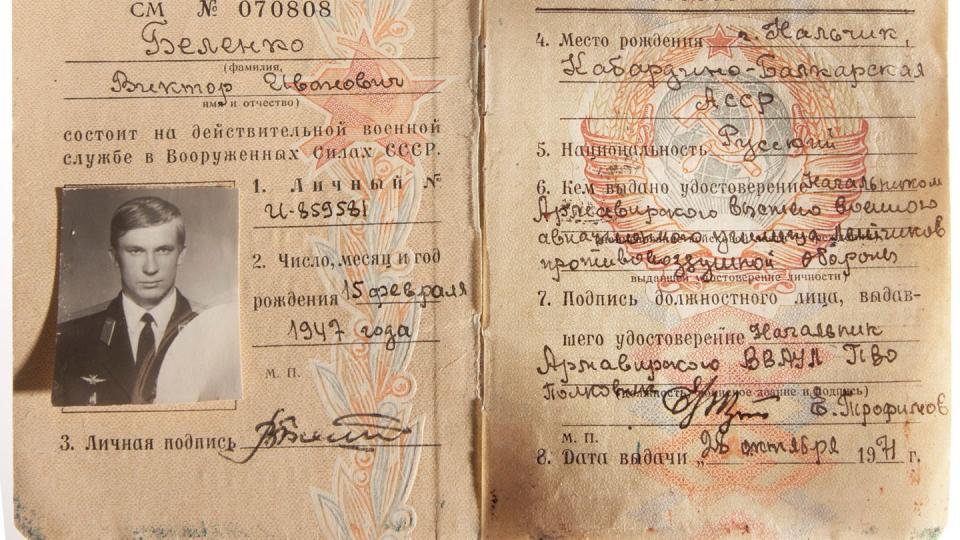 СМ № 070808
Беленко
(фамилия,
Виктор Иванович
имя и отчество)
состоит на действительной военной
службе в Вооруженных Силах СССР.
1. Личный №
И-859581
2. Число, месяц и год
рождения 15 февраля
1947 года
М. П.
3. Личная подпись
4. Место рождения г. Нальчик,
Кабардино-Балкарская
АССР
5. Национальность Русский
6. Кем выдано удостоверение Начальником
Армавирского высшего военного
авиационного училища лётчиков
противовоздушной обороны
выдавшей удостоверение личности)
7. Подпись должностного лица, выдав-
шего удостоверение Начальник
Армавирского ВВАУЛ ПВО
Полковник звание и подпись) Е. Трофимов
М. П.
8. Дата выдачи „28 октября 1971 г.